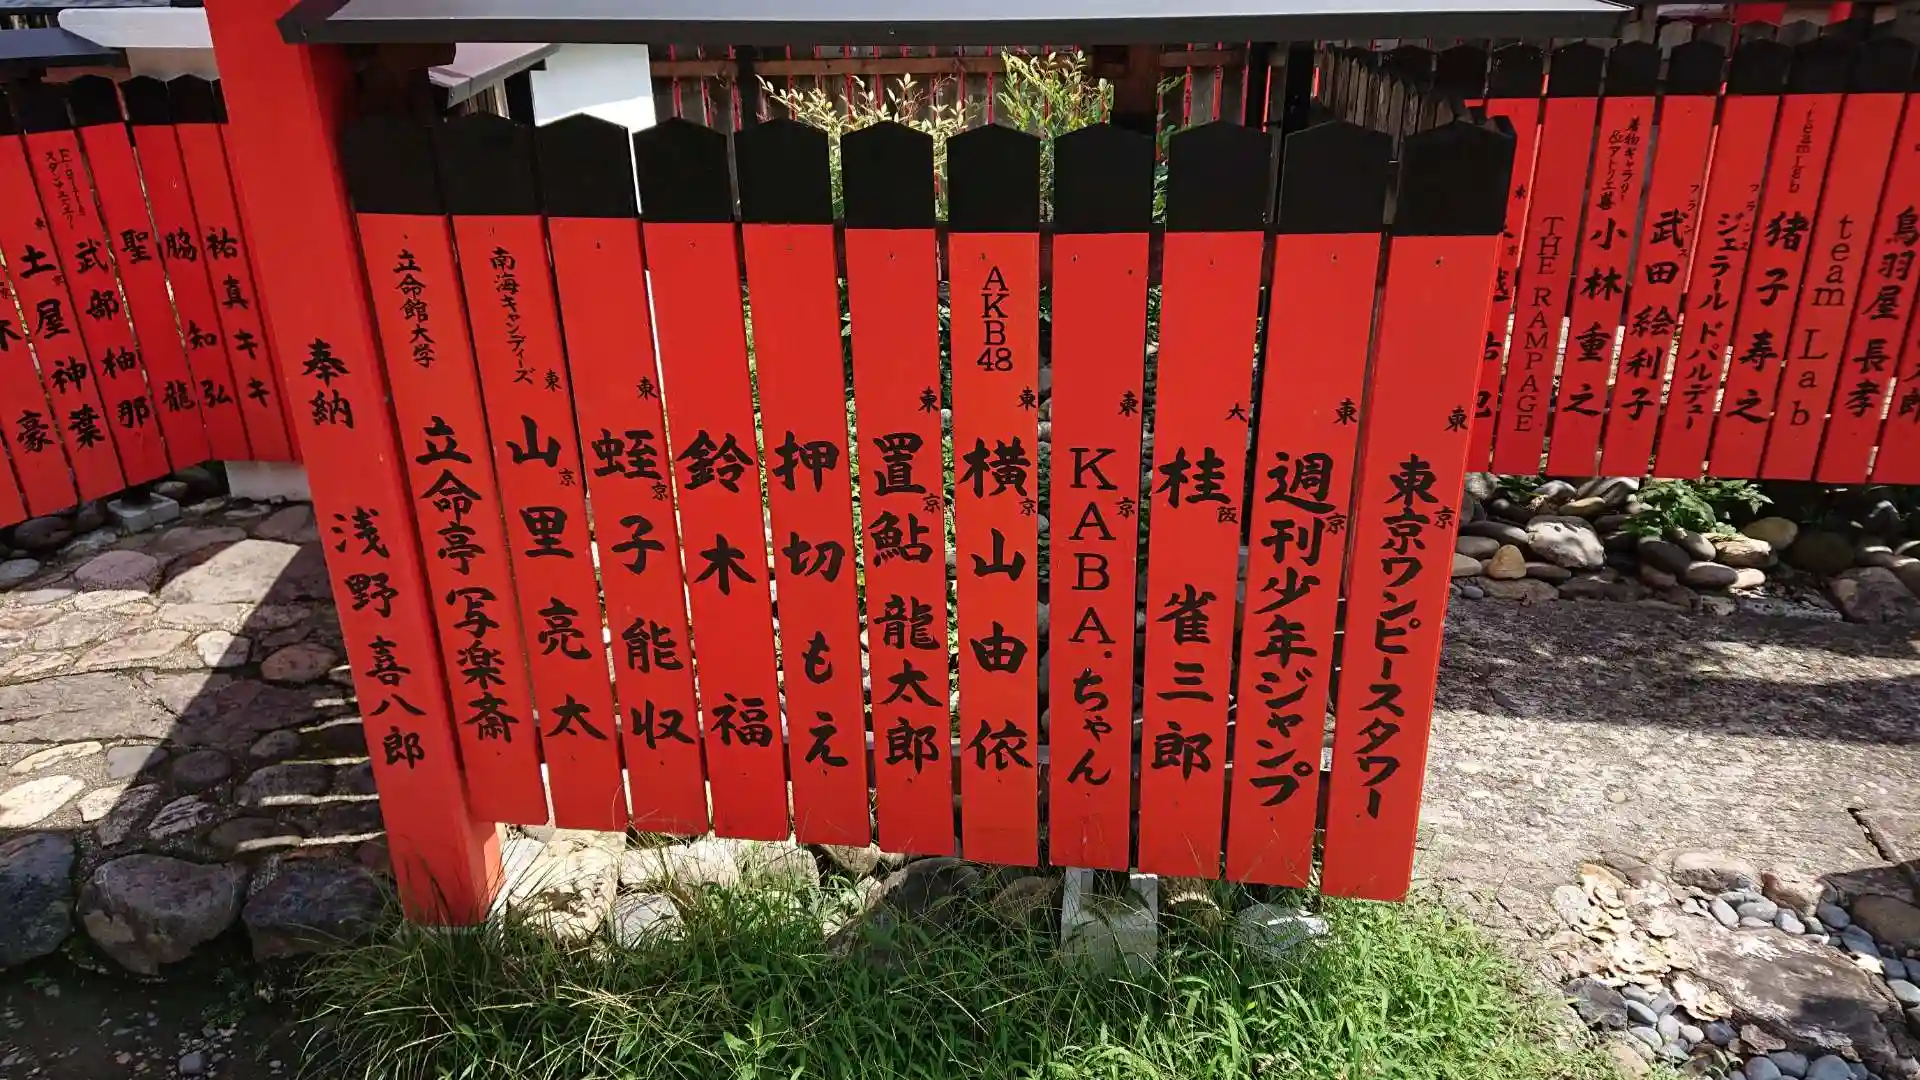 東京ワンピースタワー
東京
週刊少年ジャンプ
東京
桂 雀三郎
大阪
KABA.ちゃん
東京
AKB48
横山由依
東京
置鮎龍太郎
東京
押切もえ
鈴木福
蛭子能収
東京
南海キャンディーズ
山里亮太
東京
立命館大学
立命亭写楽斎
奉納 浅野喜八郎
祐真キキ
脇知弘
聖龍
武部柚那
土屋神葉
豪
鳥羽屋長孝
teamLab
teamlab
猪子寿之
フランス
ジェラールドパルデュー
フランス
武田絵利子
着物ギャラリー
小林重之
THE RAMPAGE